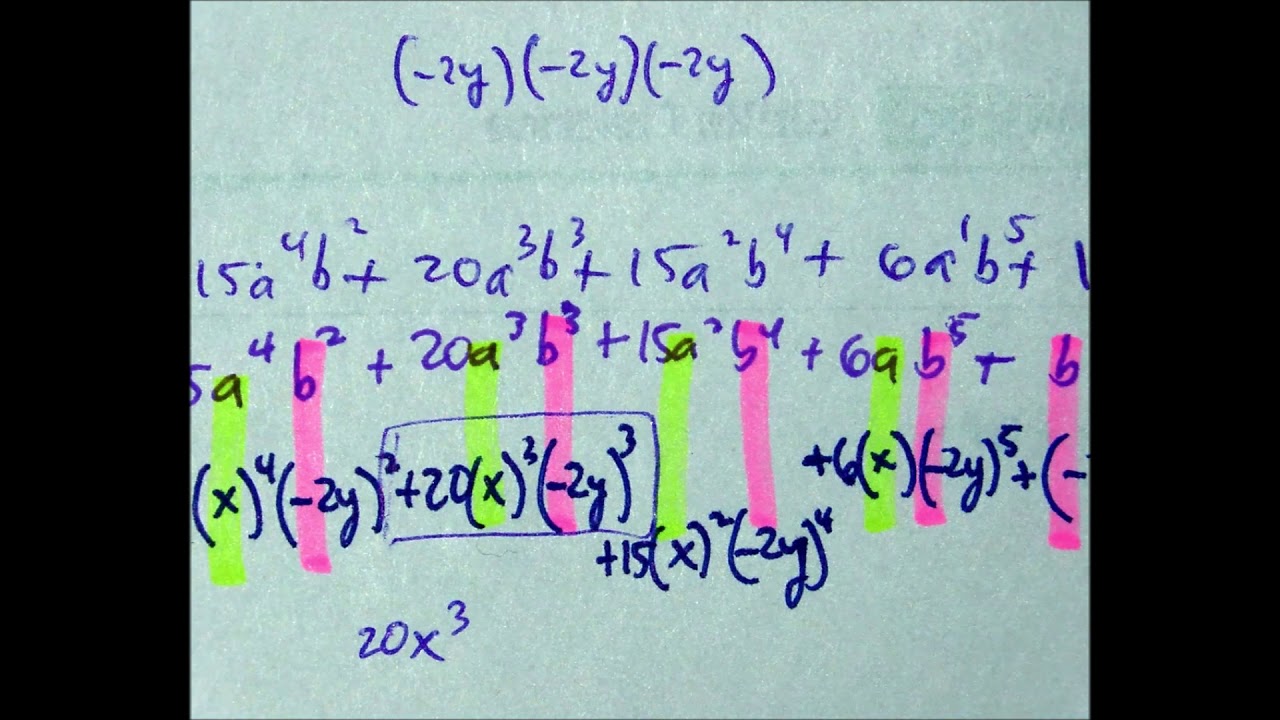 (-2y)(-2y)(-2y)
15a⁴b² + 20a³b³ + 15a²b⁴ + 6a¹b⁵ + 1
5a⁴b² + 20a³b³ + 15a²b⁴ + 6ab⁵ + b
(x)⁴(-2y)² + 20(x)³(-2y)³ + 15(x)²(-2y)⁴ + 6(x)(-2y)⁵ + (-
20x³